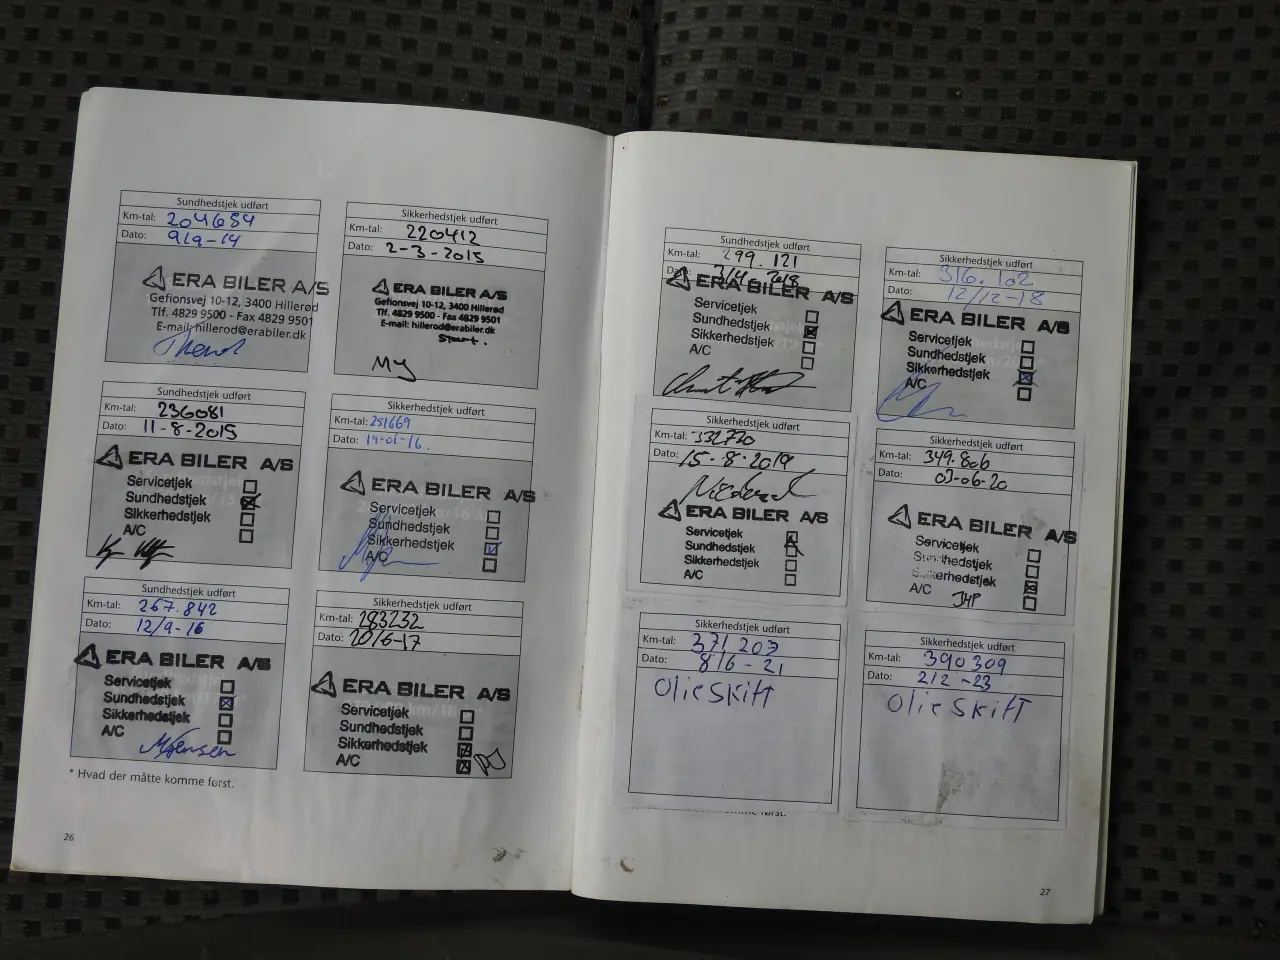 Sundhedstjek udført
Km-tal: 204684
Dato: 9/9-14
ERA BILER A/S
Gefionsvej 10-12, 3400 Hillerød
Tlf. 4829 9500 - Fax 4829 9501
E-mail: hillerod@erabiler.dk
Sikkerhedstjek udført
Km-tal: 220412
Dato: 2-3-2015
ERA BILER A/S
Gefionsvej 10-12, 3400 Hillerød
Tlf. 4829 9500 - Fax 4829 9501
E-mail: hillerod@erabiler.dk
My
Sundhedstjek udført
Km-tal: 236081
Dato: 11-8-2015
ERA BILER A/S
Servicetjek
Sundhedstjek
Sikkerhedstjek
A/C
Sikkerhedstjek udført
Km-tal: 251669
Dato: 19-01-16.
ERA BILER A/S
Servicetjek
Sundhedstjek
Sikkerhedstjek
A/C
Sundhedstjek udført
Km-tal: 267.842
Dato: 12/9-16
ERA BILER A/S
Servicetjek
Sundhedstjek
Sikkerhedstjek
A/C
Sikkerhedstjek udført
Km-tal: 283232
Dato: 20/6-17
ERA BILER A/S
Servicetjek
Sundhedstjek
Sikkerhedstjek
A/C
* Hvad der måtte komme først.
26
Sundhedstjek udført
Km-tal: 299.121
ERA BILER A/S
Servicetjek
Sundhedstjek
Sikkerhedstjek
A/C
Sikkerhedstjek udført
Km-tal: 316.102
Dato: 12/12-18
ERA BILER A/S
Servicetjek
Sundhedstjek
Sikkerhedstjek
A/C
Sundhedstjek udført
Km-tal: 332770
Dato: 15-8-2019
ERA BILER A/S
Servicetjek
Sundhedstjek
Sikkerhedstjek
A/C
Sikkerhedstjek udført
Km-tal: 349.806
Dato: 03-06-20
ERA BILER A/S
Servicetjek
Sundhedstjek
Sikkerhedstjek
A/C
JHP
Sikkerhedstjek udført
Km-tal: 371203
Dato: 8/6-21
Olie Skift
Sikkerhedstjek udført
Km-tal: 390309
Dato: 2/2-23
Olie Skift
27